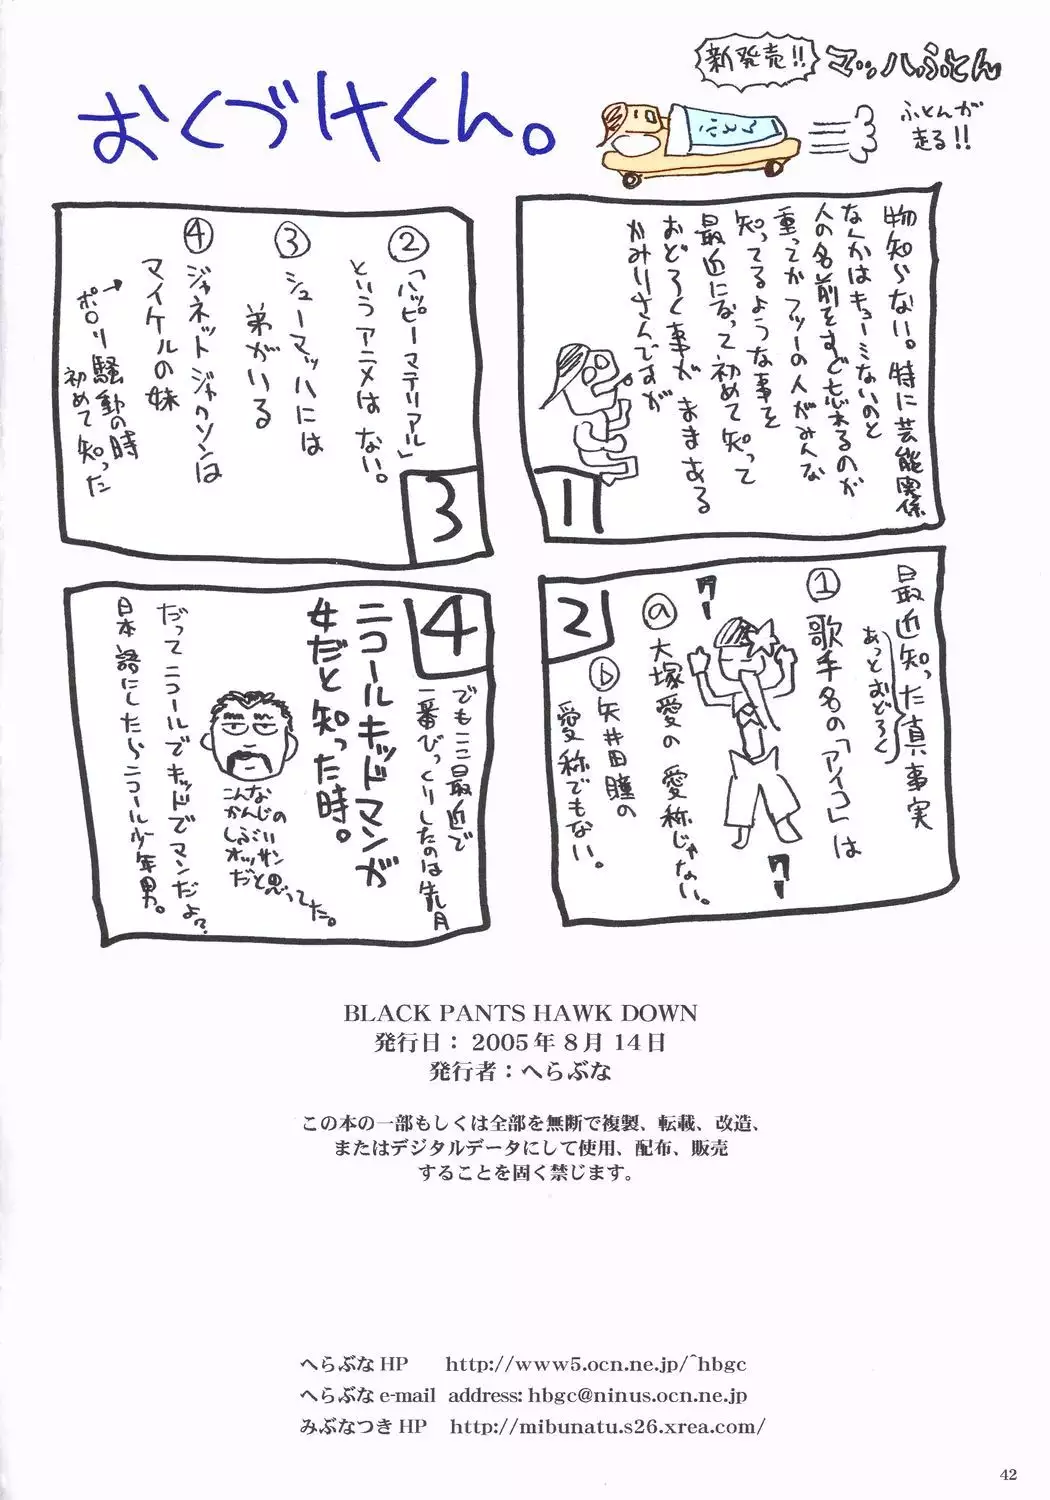 おくづけくん。
新発売!!
マッハふとん
ふとんが
走る!!
ふとん
物知らない。特に芸能関係
なんかはキョーミないのと
人の名前をすぐ忘れるのが
重ってかフツーの人がみんな
知ってるような事を
最近になって初めて知って
おどろく事がままある
かみりさんですが
1
2
最近知った真事実
あっとおどろく
①歌手名の「アイコ」は
ⓐ大塚愛の愛称じゃない。
ⓑ矢井田瞳の
愛称でもない。
クー
クー
②「ハッピーマテリアル」
というアニメはない。
③シューマッハには
弟がいる
④ジャネットジャクソンは
マイケルの妹
→ポロリ騒動の時
初めて知った
3
4
でもここ最近で
一番びっくりしたのは先月
ニコールキッドマンが
女だと知った時。
こんな
かんじの
しぶいい
オッサン
だと思ってた。
だってニコールでキッドでマンだよ?
日本語にしたらニコール少年男。
BLACK PANTS HAWK DOWN
発行日： 2005年 8月 14日
発行者：へらぶな
この本の一部もしくは全部を無断で複製、転載、改造、
またはデジタルデータにして使用、配布、販売
することを固く禁じます。
へらぶな HP http://www5.ocn.ne.jp/^hbgc
へらぶな e-mail address: hbgc@ninus.ocn.ne.jp
みぶなつき HP http://mibunatu.s26.xrea.com/
42